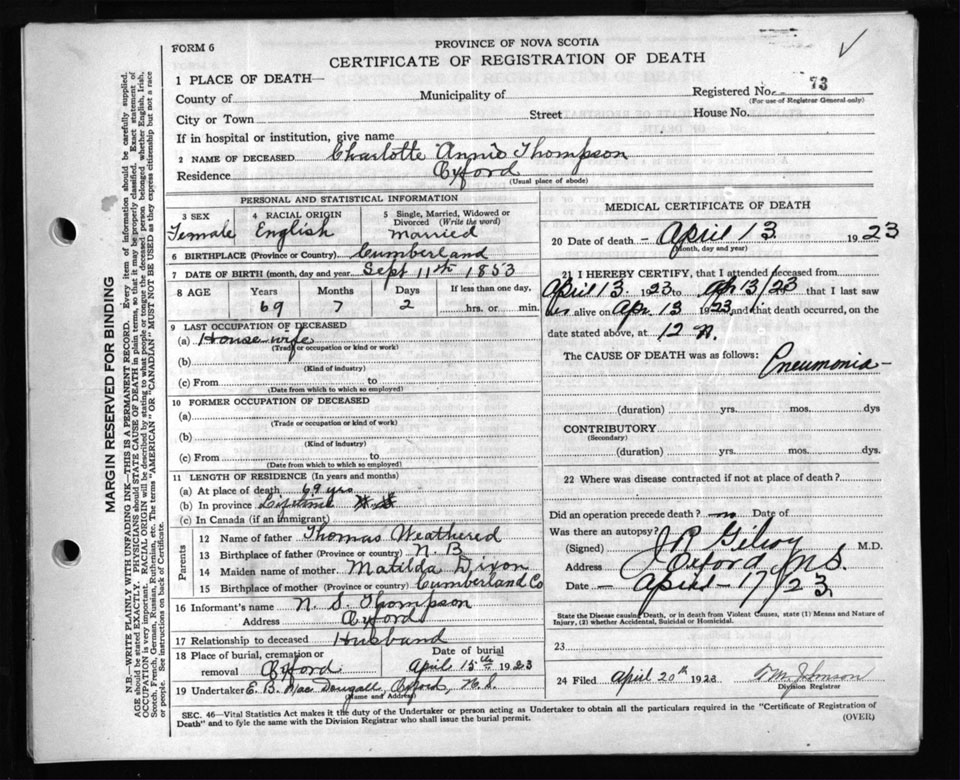 FORM 6
PROVINCE OF NOVA SCOTIA
CERTIFICATE OF REGISTRATION OF DEATH
1 PLACE OF DEATH—
Registered No. 73
(For use of Registrar General only)
County of
Municipality of
City or Town
Street
House No.
If in hospital or institution, give name
2 NAME OF DECEASED Charlotte Annie Thompson
Residence Oxford
(Usual place of abode)
PERSONAL AND STATISTICAL INFORMATION
3 SEX
Female
4 RACIAL ORIGIN
English
5 Single, Married, Widowed or Divorced (Write the word)
married
6 BIRTHPLACE (Province or Country) Cumberland
7 DATE OF BIRTH (month, day and year) Sept 11th 1853
8 AGE
Years
69
Months
7
Days
2
If less than one day,
hrs. or min.
9 LAST OCCUPATION OF DECEASED
(a) House wife
(Trade or occupation or kind of work)
(b)
(Kind of industry)
(c) From to
(Date from which to which so employed)
10 FORMER OCCUPATION OF DECEASED
(a)
(Trade or occupation or kind of work)
(b)
(Kind of industry)
(c) From to
(Date from which to which so employed)
11 LENGTH OF RESIDENCE (In years and months)
(a) At place of death 69 yrs
(b) In province Lifetime
(c) In Canada (if an immigrant)
Parents
12 Name of father Thomas Weathered
13 Birthplace of father (Province or country) N. B
14 Maiden name of mother Matilda Dixon
15 Birthplace of mother (Province or country) Cumberland Co
16 Informant's name N. S. Thompson
Address Oxford
17 Relationship to deceased Husband
18 Place of burial, cremation or removal Oxford
Date of burial
April 15th 1923
19 Undertaker E. B. Mac Dougall, Oxford, N. S.
(Name and Address)
MEDICAL CERTIFICATE OF DEATH
20 Date of death — April 13 1923
(Month, day and year)
21 I HEREBY CERTIFY, that I attended deceased from
April 13. 1923 to Apr 13/23 that I last saw
her alive on Apr. 13 1923 and that death occurred, on the
date stated above, at 12 N.
The CAUSE OF DEATH was as follows: Pneumonia —
(duration) yrs. mos. dys
CONTRIBUTORY
(Secondary)
(duration) yrs. mos. dys
22 Where was disease contracted if not at place of death?
Did an operation precede death? no Date of
Was there an autopsy?
(Signed) J P Gilroy M.D.
Address Oxford N.S.
Date — April — 17/23
State the Disease causing Death, or in death from Violent Causes, state (1) Means and Nature of
Injury, (2) whether Accidental, Suicidal or Homicidal.
23
24 Filed April 20th 1923 Johnson
Division Registrar
SEC. 46—Vital Statistics Act makes it the duty of the Undertaker or person acting as Undertaker to obtain all the particulars required in the "Certificate of Registration of
Death" and to fyle the same with the Division Registrar who shall issue the burial permit.
(OVER)
MARGIN RESERVED FOR BINDING
N.B.—WRITE PLAINLY WITH UNFADING INK—THIS IS A PERMANENT RECORD. Every item of information should be carefully supplied.
AGE should be stated EXACTLY. PHYSICIANS should STATE CAUSE OF DEATH in plain terms, so that it may be properly classified. Exact statement of
OCCUPATION is very important. RACIAL ORIGIN will be described by stating to what people or tongue the deceased person belonged whether English, Irish,
Scotch, French, German, Russian, Ruthenian, etc. The terms "AMERICAN" OR "CANADIAN" MUST NOT BE USED as they express citizenship but not a race
or people. See instructions on back of Certificate.